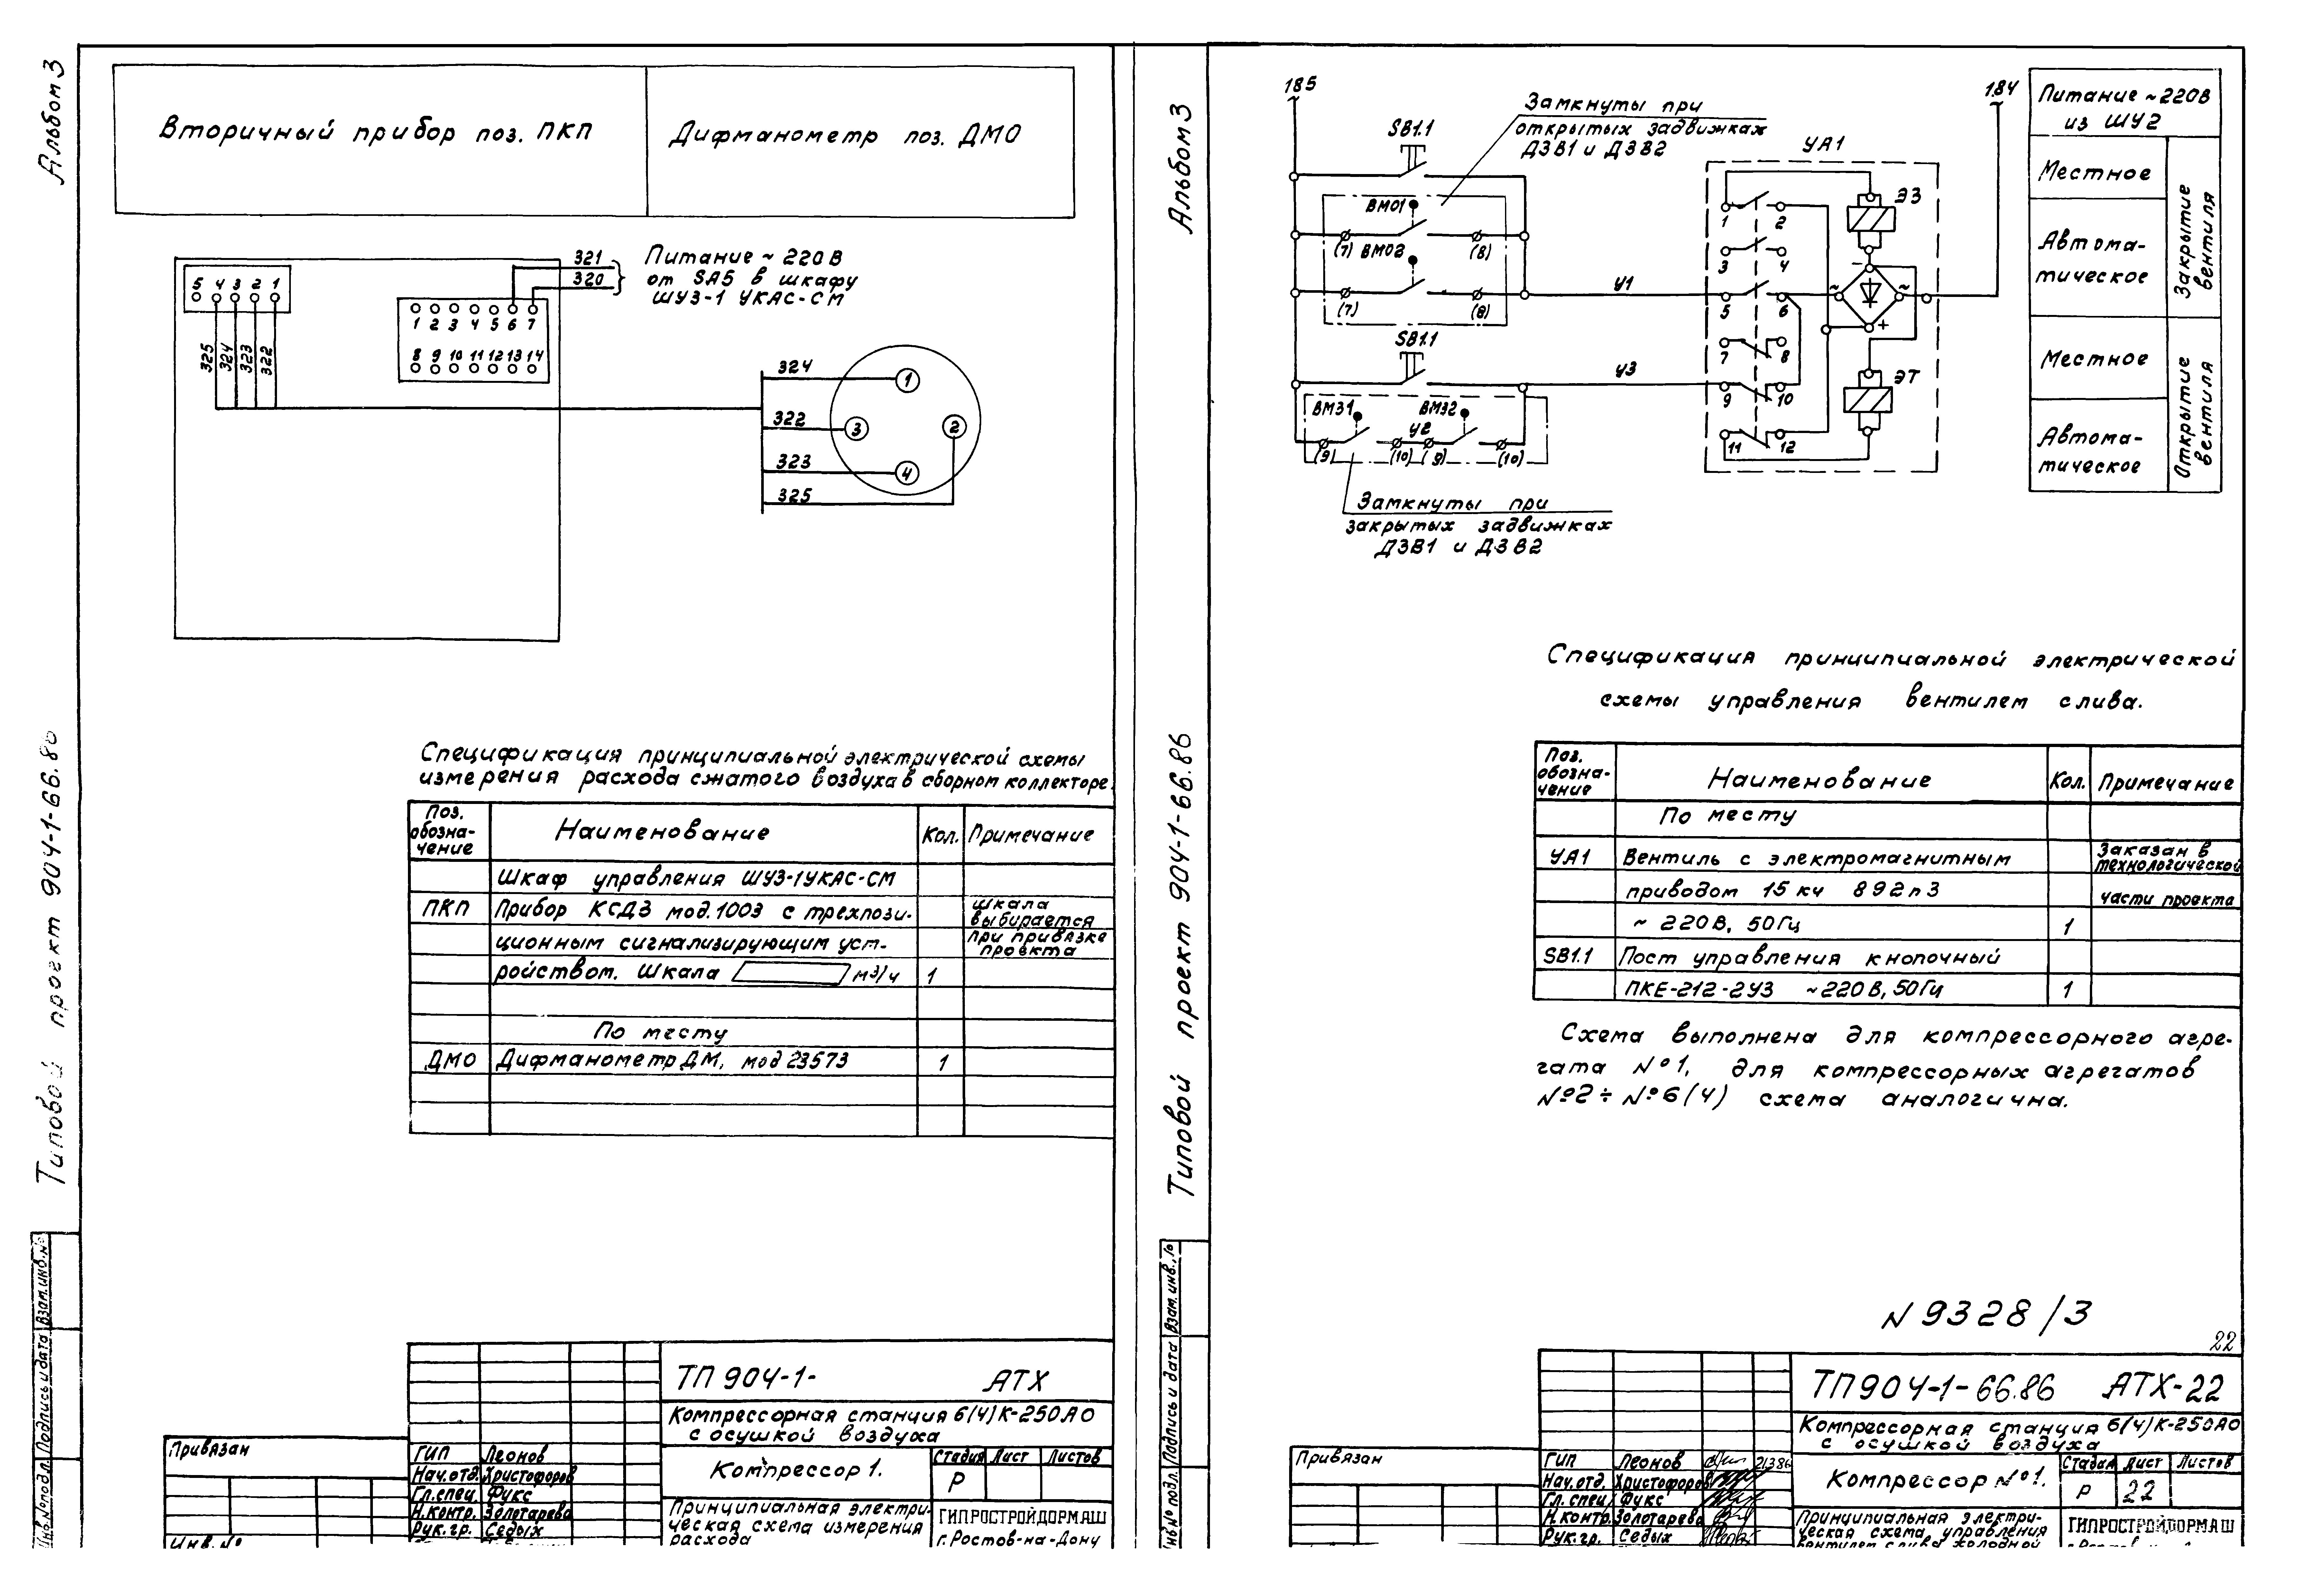 Альбом 3
Типовой проект 904-1-66.86
Взам. инв. №
Подпись и дата
Инв. № подл.
Вторичный прибор поз. ПКП
Дифманометр поз. ДМО
5 4 3 2 1
325 324 323 322
1 2 3 4 5 6 7
8 9 10 11 12 13 14
321
320
Питание ~ 220 В
от SA5 в шкафу
ШУЗ-1 УКАС-СМ
324
322
323
325
1
3
2
4
Спецификация принципиальной электрической схемы
измерения расхода сжатого воздуха в сборном коллекторе.
Поз. обозна-чение
Наименование
Кол.
Примечание
Шкаф управления ШУЗ-1УКАС-СМ
ПКП
Прибор КСД3 мод. 1003 с трехпози-
шкала выбирается
ционным сигнализирующим уст-
при привязке проекта
ройством. Шкала м3/ч
1
По месту
ДМО
Дифманометр ДМ, мод 23573
1
ТП 904-1- АТХ
Компрессорная станция 6(4)К-250АО
с осушкой воздуха
Привязан
Инв. №
ГИП Леонов
Нач.отд. Христофоров
Гл.спец. Фукс
Н.контр. Золотарева
Рук.гр. Седых
Компрессор 1.
Стадия Лист Листов
Р
Принципиальная электри-
ческая схема измерения
расхода
ГИПРОСТРОЙДОРМАШ
г. Ростов-на-Дону
Альбом 3
Типовой проект 904-1-66.86
Взам. инв.
Подпись и дата
Инв № подл.
185
SB1.1
Замкнуты при
открытых задвижках
ДЗВ1 и ДЗВ2
ВМ01
(7) ВМ02 (8)
(7) (8)
У1
SB1.1
У3
ВМ31 ВМ32
У2
(9) (10) (9) (10)
Замкнуты при
закрытых задвижках
ДЗВ1 и ДЗВ2
УА1
1 2
3 4
5 6
7 8
9 10
11 12
ЭЗ
- ~ ~ +
ЭТ
184
Питание ~220В
из ШУ2
Местное
Автома-
тическое
Закрытие вентиля
Местное
Автома-
тическое
Открытие вентиля
Спецификация принципиальной электрической
схемы управления вентилем слива.
Поз. обозна-чение
Наименование
Кол.
Примечание
По месту
УА1
Вентиль с электромагнитным
Заказан в технологической
приводом 15 кч 892п3
части проекта
~ 220 В, 50 Гц
1
SB1.1
Пост управления кнопочный
ПКЕ-212-2У3 ~220 В, 50 Гц
1
Схема выполнена для компрессорного агре-
гата №1, для компрессорных агрегатов
№2 ÷ №6(4) схема аналогична.
N 9328/3
22
ТП904-1-66.86 АТХ-22
Компрессорная станция 6(4)К-250АО
с осушкой воздуха
Привязан
ГИП Леонов 21386
Нач.отд. Христофоров
Гл.спец. Фукс
Н.контр. Золотарева
Рук.гр. Седых
Компрессор №1.
Стадия Лист Листов
Р 22
Принципиальная электри-
ческая схема управления
вентилем слива холодной
ГИПРОСТРОЙДОРМАШ